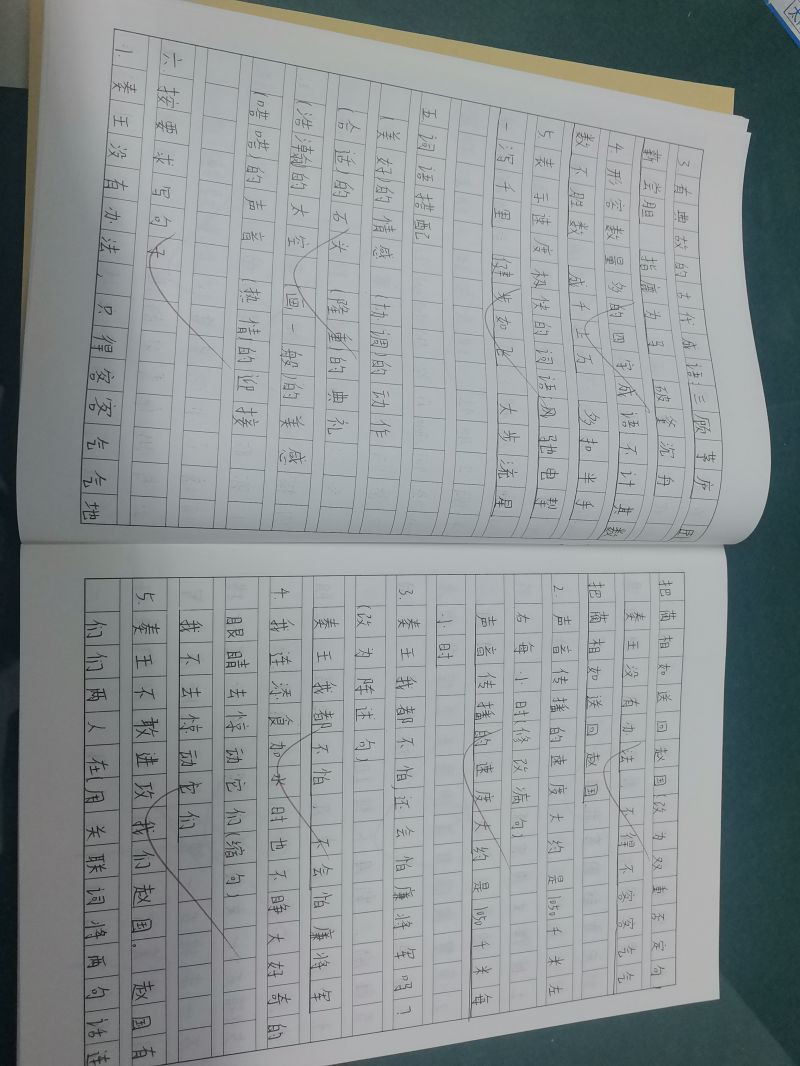 3.有典故的古代成语:三顾茅庐 卧
薪尝胆 指鹿为马 破釜沉舟
4.形容数量多的四字成语不计其数
数不胜数 成千上万 多如牛毛
5.表示速度极快的词语:风驰电掣
一泻千里 健步如飞 大步流星
五.词语搭配
(美好)的情感 (协调)的动作
(合适)的石头 (隆重)的典礼
(浩瀚)的太空 画一般的美感
(嗒嗒)的声音 (热情)的迎接
六.按要求写句子
1.秦王没有办法,只得客客气气地
把蔺相如送回赵国(改为双重否定句)
秦王没有办法,不得不客客气气
把蔺相如送回赵国
2.声音传播的速度大约是1050千米左
右每小时(修改病句)
声音传播的速度大约是1050千米每
小时
3.秦王我都不怕,还会怕廉将军吗?
(改为陈述句)
秦王我都不怕,不会怕廉将军
4.我连添食加水时也不睁大好奇的
眼睛去惊动它们(缩句)
我不去惊动它们
5.秦王不敢进攻我们赵国。赵国有
们们两人在(用关联词将两句话连